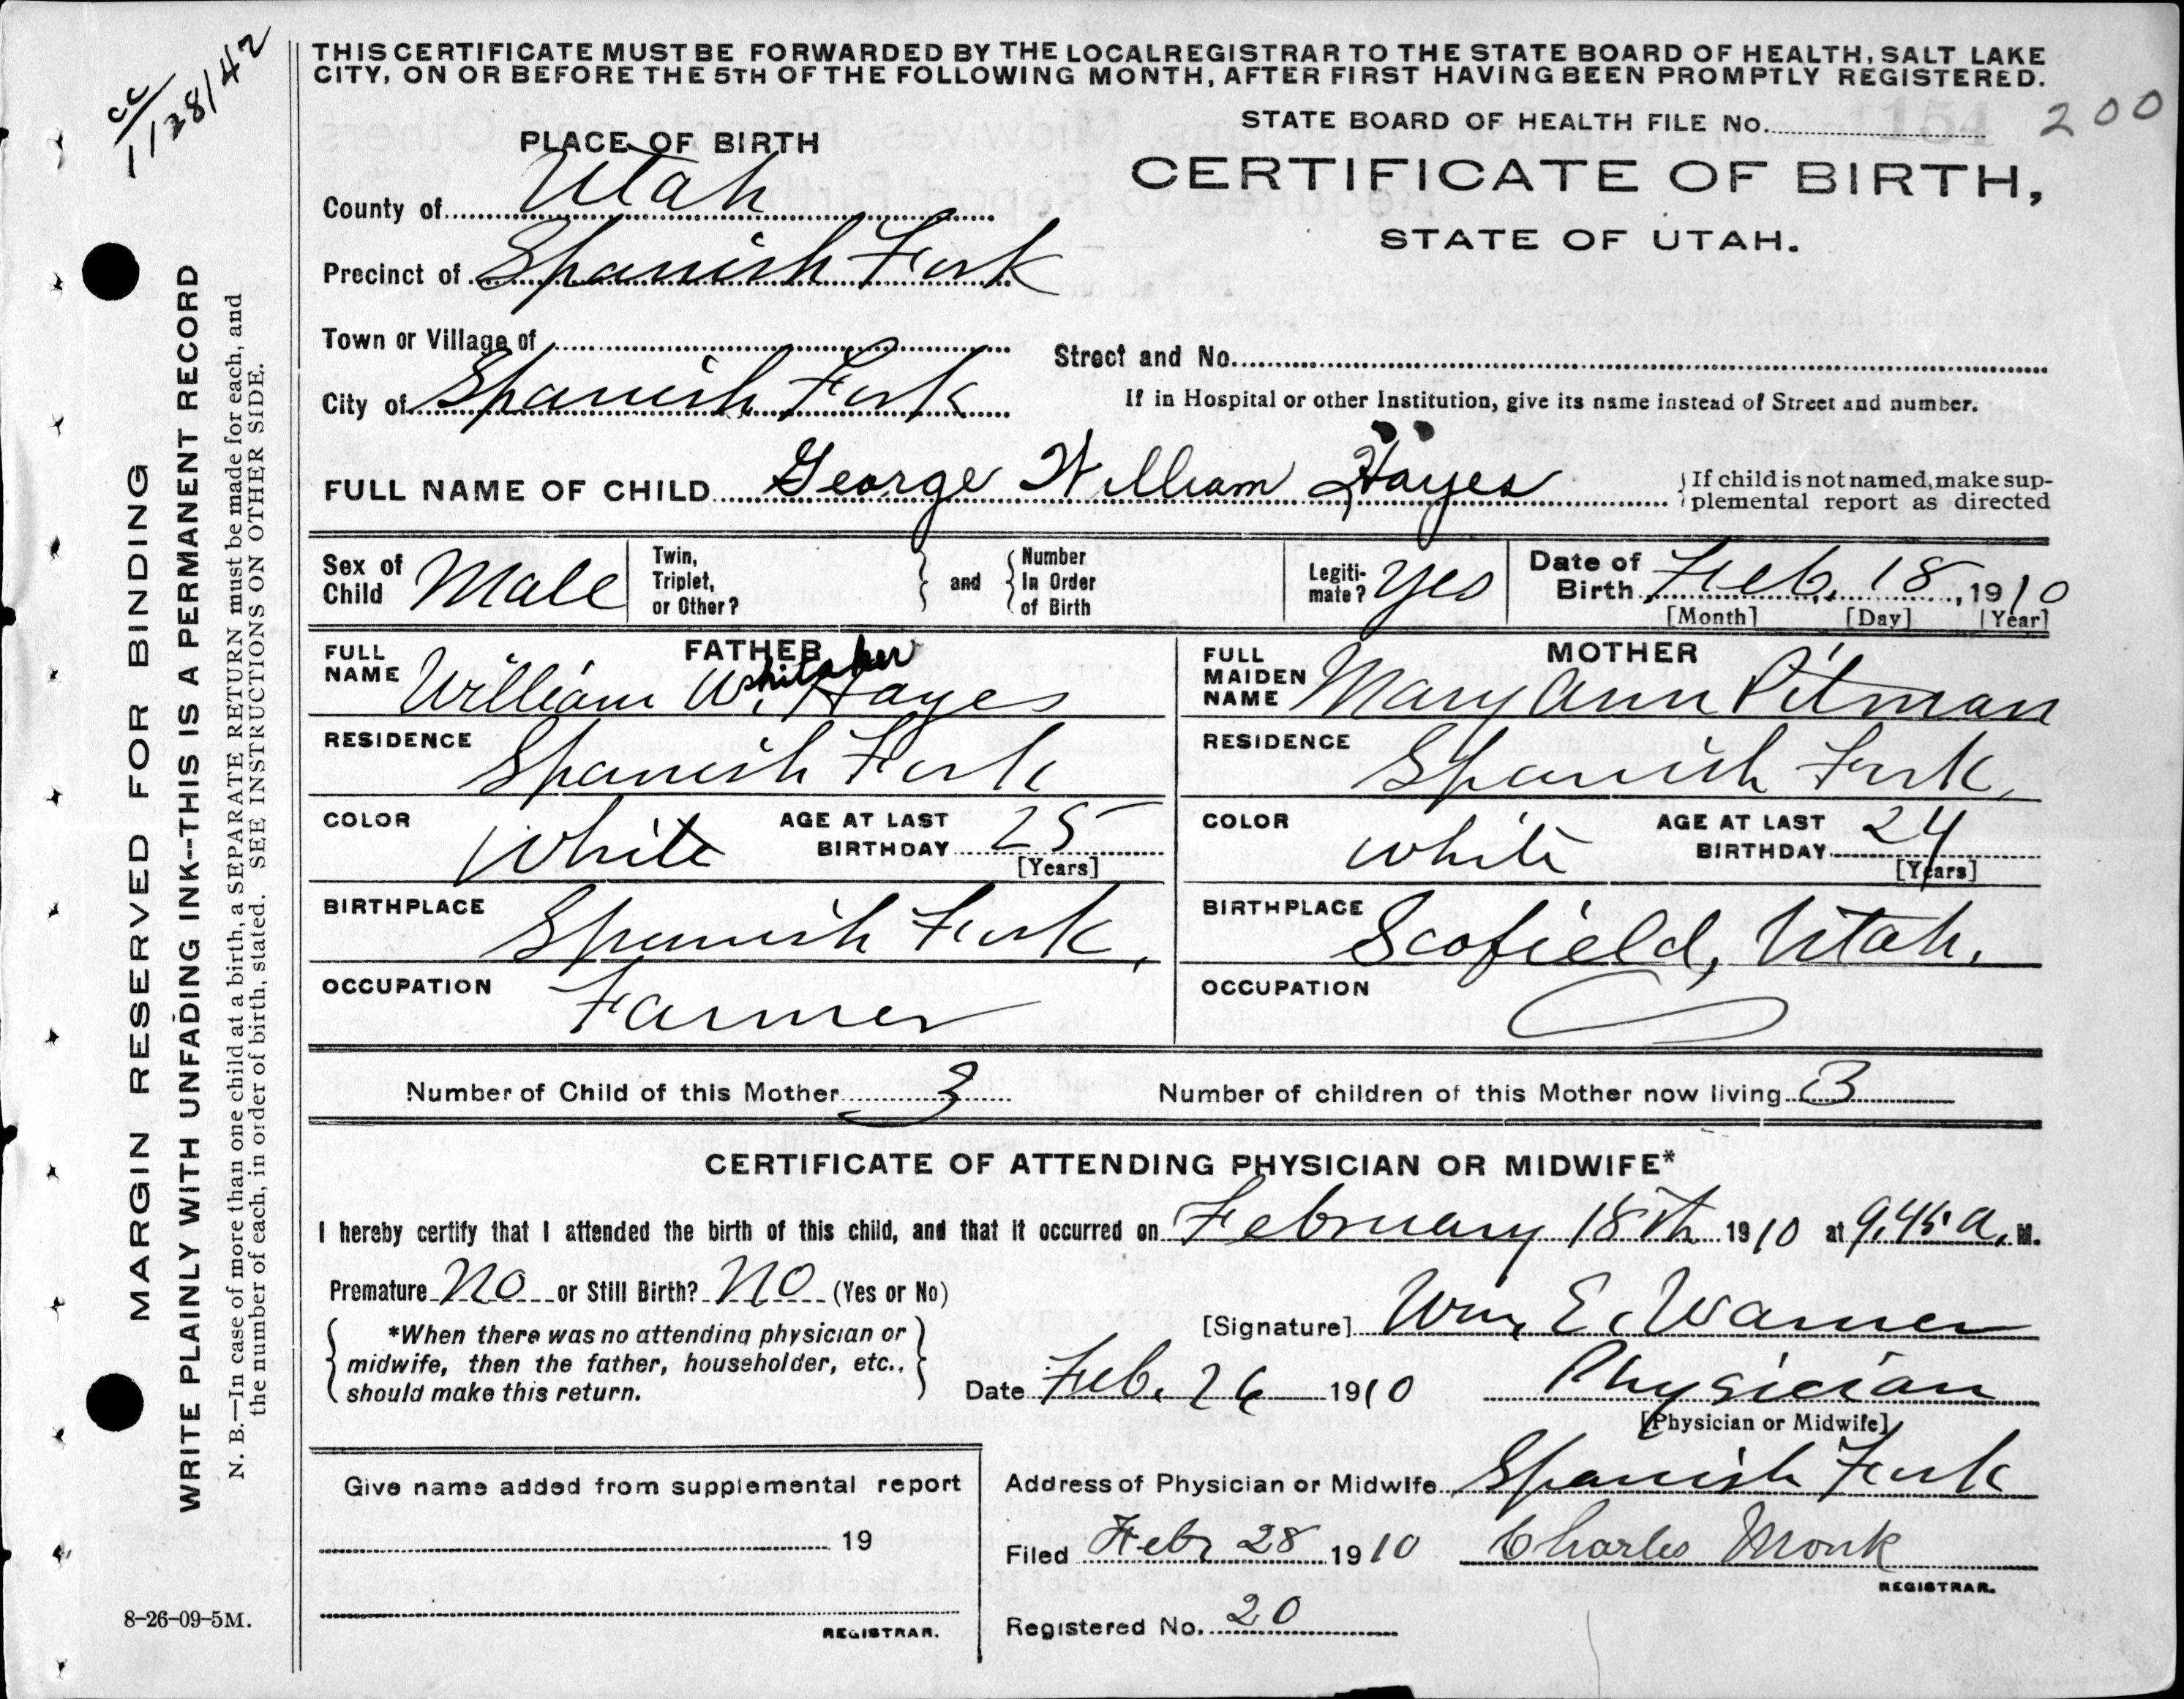 cc
1/28/42
THIS CERTIFICATE MUST BE FORWARDED BY THE LOCAL REGISTRAR TO THE STATE BOARD OF HEALTH, SALT LAKE
CITY, ON OR BEFORE THE 5TH OF THE FOLLOWING MONTH, AFTER FIRST HAVING BEEN PROMPTLY REGISTERED.
STATE BOARD OF HEALTH FILE No. 154 200
PLACE OF BIRTH
CERTIFICATE OF BIRTH,
STATE OF UTAH.
County of Utah
Precinct of Spanish Fork
Town or Village of
Street and No.
City of Spanish Fork
If in Hospital or other Institution, give its name instead of Street and number.
FULL NAME OF CHILD George William Hayes
If child is not named, make sup-
plemental report as directed
Sex of Child Male
Twin, Triplet, or Other?
and
Number In Order of Birth
Legiti-mate? yes
Date of Birth Feb. 18, 1910
[Month] [Day] [Year]
FATHER
FULL NAME William W. Hayes
Whitaker
RESIDENCE Spanish Fork
COLOR White
AGE AT LAST BIRTHDAY 25
[Years]
BIRTHPLACE Spanish Fork,
OCCUPATION Farmer
MOTHER
FULL MAIDEN NAME Mary Ann Pitman
RESIDENCE Spanish Fork,
COLOR White
AGE AT LAST BIRTHDAY 24
[Years]
BIRTHPLACE Scofield, Utah.
OCCUPATION
Number of Child of this Mother 3
Number of children of this Mother now living 3
CERTIFICATE OF ATTENDING PHYSICIAN OR MIDWIFE*
I hereby certify that I attended the birth of this child, and that it occurred on February 18th 1910 at 9.45 a. M.
Premature No or Still Birth? No (Yes or No)
*When there was no attending physician or
midwife, then the father, householder, etc.,
should make this return.
[Signature] Wm. E. Warner
Date Feb. 26 1910
Physician
[Physician or Midwife]
Give name added from supplemental report
19
REGISTRAR.
Address of Physician or Midwife Spanish Fork
Filed Feb 28 1910 Charles Monk
REGISTRAR.
Registered No. 20
MARGIN RESERVED FOR BINDING
WRITE PLAINLY WITH UNFADING INK--THIS IS A PERMANENT RECORD
N. B.—In case of more than one child at a birth, a SEPARATE RETURN must be made for each, and
the number of each, in order of birth, stated. SEE INSTRUCTIONS ON OTHER SIDE.
8-26-09-5M.